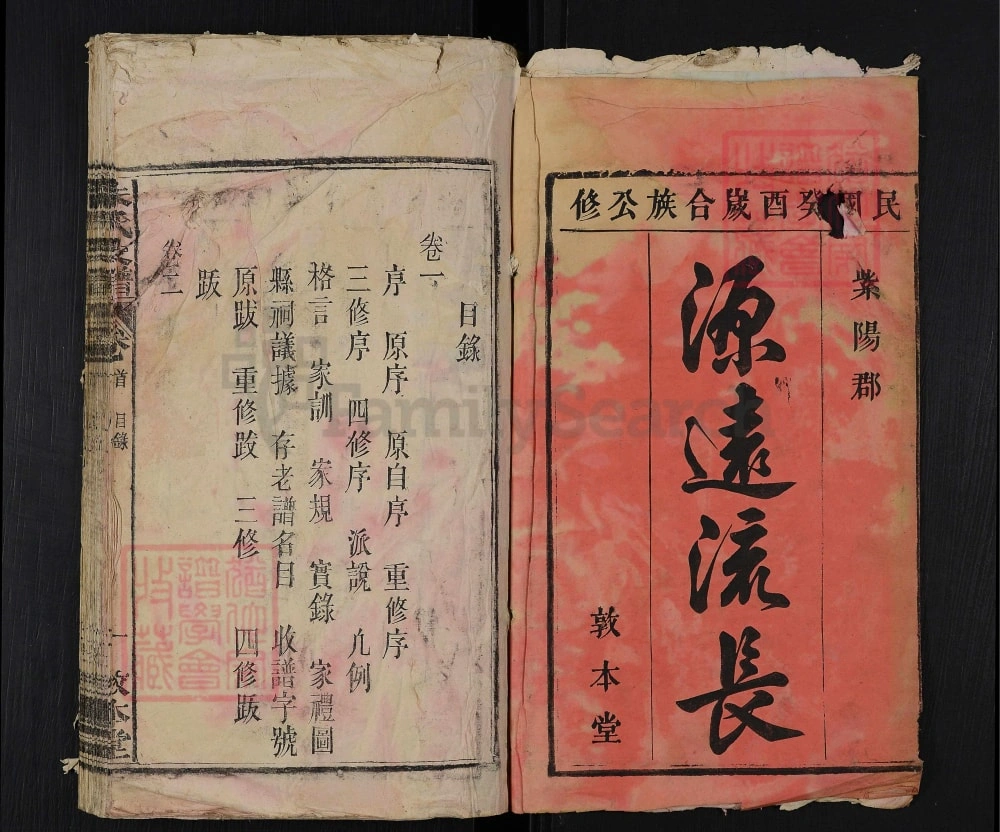 民國癸酉歲合族公修
紫陽郡
源遠流長
敦本堂
目錄
卷一
序 原序 原自序 重修序
三修序 四修序 派說 凡例
格言 家訓 家規 實錄 家禮圖
縣祠議據 存老譜名目 收譜字號
原跋 重修跋 三修 四修跋
跋
卷二
朱氏支譜 卷 首 目錄 一 敦本堂
譜學會
收藏
FamilySearch